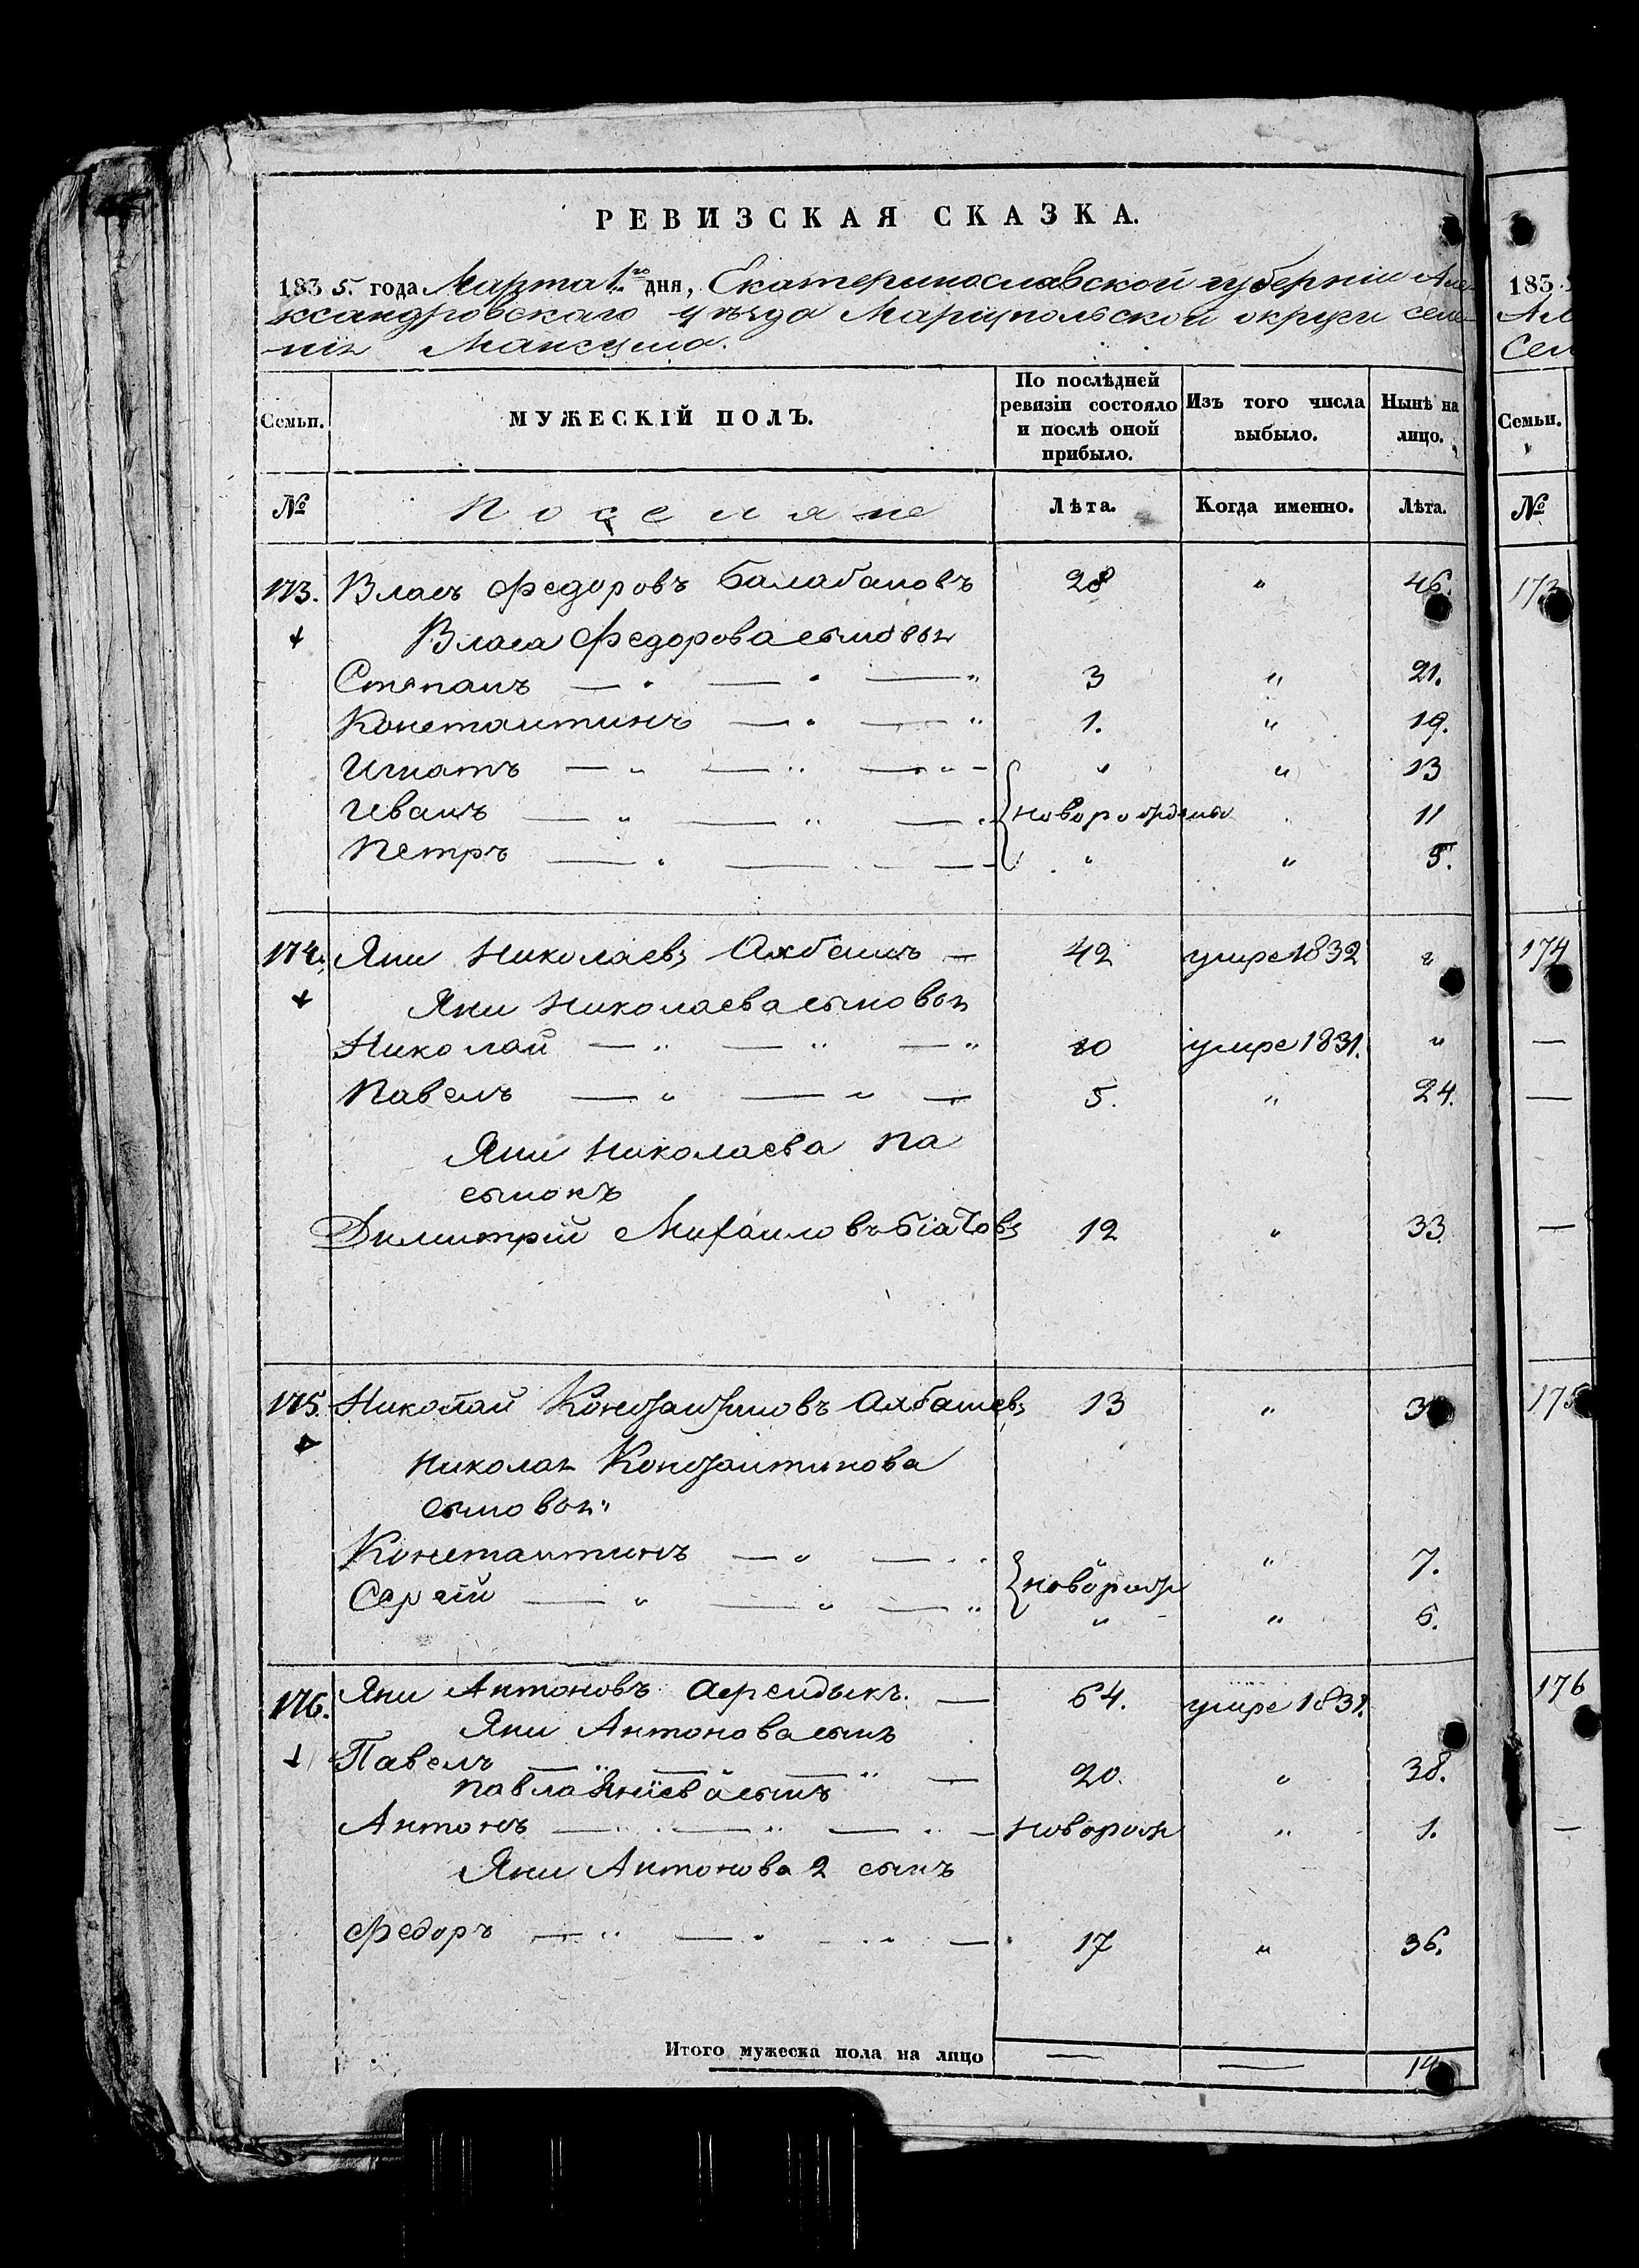 РЕВИЗСКАЯ СКАЗКА.
1835. года Марта 1го дня, Екатеринославской губерніи Але-
ксандровскаго уѣзда Маріупольской округи селе-
нія Мангуша.
Семьи. МУЖЕСКІЙ ПОЛЪ. По послѣдней ревизіи состояло и послѣ оной прибыло. Изъ того числа выбыло. Нынѣ на лицо.
№ Поселяне Лѣта. Когда именно. Лѣта.
173. Власъ Федоровъ Балабановъ 28 " 46.
Власа Федорова сыновья
Степанъ — " — " — " 3 " 21.
Константинъ — " — " 1. " 19.
Игнатъ — " — " — " — " " 13
Иванъ — " — " — " новорождены " 11
Петръ — " — — " " 5.
174. Яни Николаевъ Ахбашъ — 42 умре 1832 "
Яни Николаева сыновья
Николай — " — " — " 10 умре 1831. "
Павелъ — " — " — 5. " 24.
Яни Николаева па
сынокъ
Димитрій Михаиловъ 12 " 33.
175. Николай Константиновъ Ахбашевъ 13 "
Николая Константинова
сыновья "
Константинъ — " — " " 7.
Сергій — " — " — " новорож " 5.
176. Яни Антоновъ — 64. умре 1831.
Яни Антонова сынъ
Павелъ — " — " — " — 20. " 38.
Павла Яніева сынъ
Антонъ — " — " — " — новорож " 1.
Яни Антонова 2 сынъ
Федоръ — " — " — " — 17 " 36.
Итого мужеска пола на лицо — — 14
183
Ал
Сел
Семьи.
№
173
174
175
176